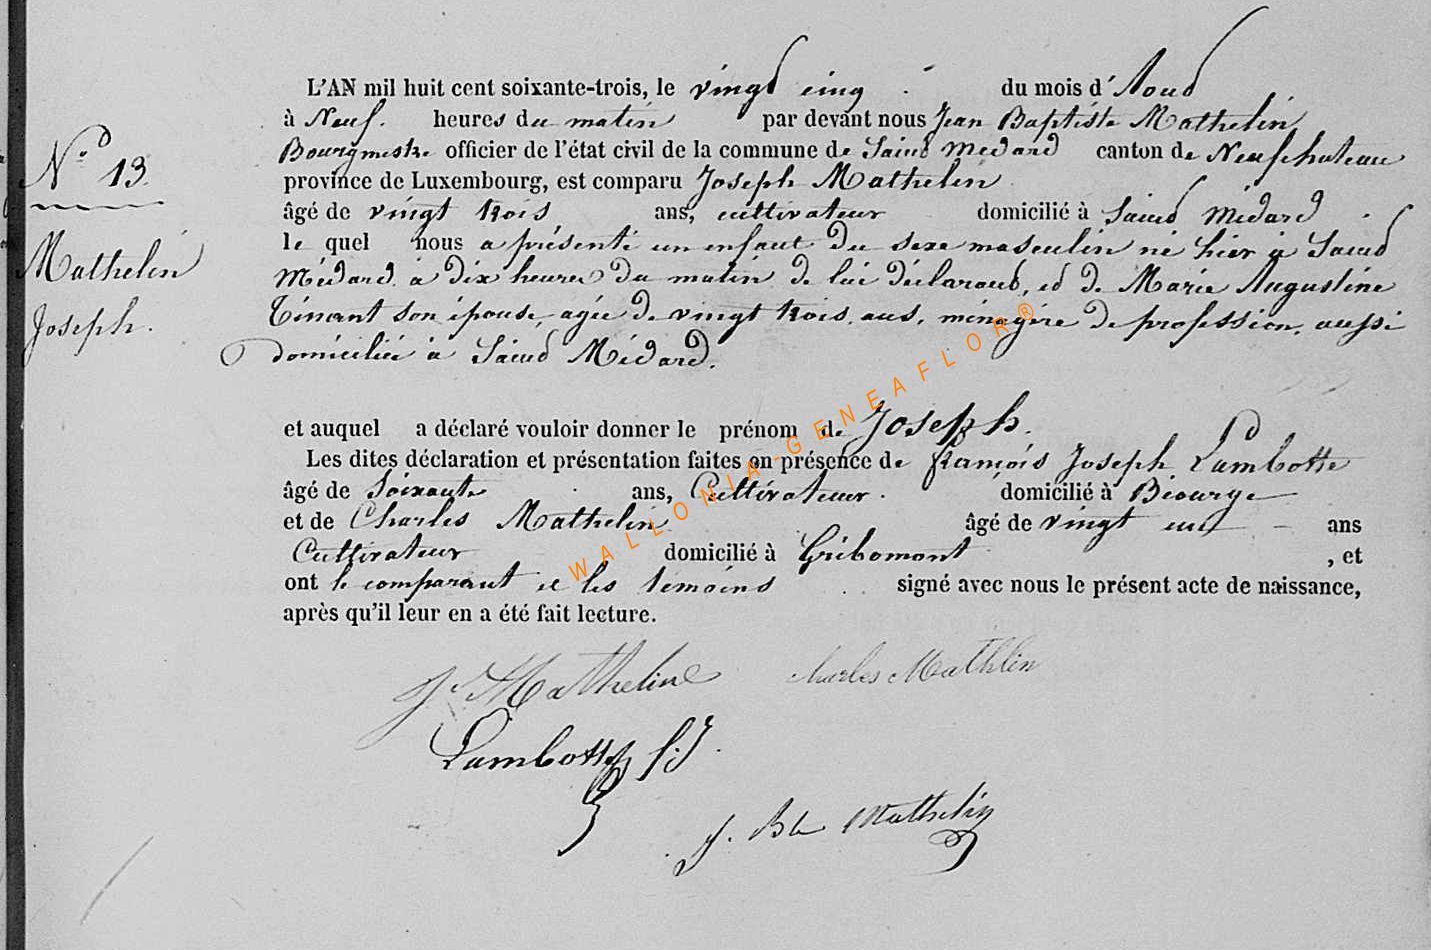 L'AN mil huit cent soixante-trois, le vingt cinq du mois d'Aout
à Neuf. heures du matin par devant nous Jean Baptiste Mathelin
Bourgmestre officier de l'état civil de la commune de Saint Médard canton de Neufchateau
province de Luxembourg, est comparu Joseph Mathelin
âgé de vingt trois ans, cultivateur domicilié à Saint Médard
le quel nous a présenté un enfant du sexe masculin né hier à Saint
Médard à dix heures du matin de lui déclarant, et de Marie Augustine
Tinant son épouse, agée de vingt trois ans, ménagère de profession, aussi
domiciliée à Saint Médard.
N° 13.
Mathelin
Joseph.
et auquel a déclaré vouloir donner le prénom de Joseph.
Les dites déclaration et présentation faites en présence de françois Joseph Lambotte
âgé de Soixante ans, Cultivateur. domicilié à Biourge
et de Charles Mathelin âgé de vingt un ans
Cultivateur domicilié à Gribomont , et
ont le comparant et les témoins signé avec nous le présent acte de naissance,
après qu'il leur en a été fait lecture.
J. Matheline charles Mathlin
Lambotte f. J.
J. Bte Mathelin
WALLONIA-GENEAFLOR®